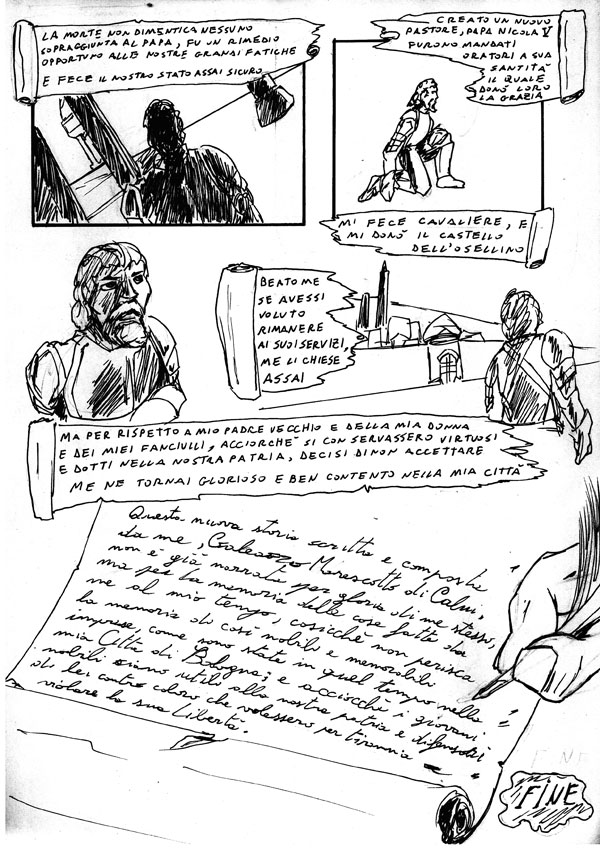 LA MORTE NON DIMENTICA NESSUNO
SOPRAGGIUNTA AL PAPA, FU UN RIMEDIO
OPPORTUNO ALLE NOSTRE GRANDI FATICHE
E FECE IL NOSTRO STATO ASSAI SICURO
CREATO UN NUOVO
PASTORE, PAPA NICOLA V
FURONO MANDATI
ORATORI A SUA
SANTITÀ
IL QUALE
DONÒ LORO
LA GRAZIA
MI FECE CAVALIERE, E
MI DONÒ IL CASTELLO
DELL'OSELLINO
BEATO ME
SE AVESSI
VOLUTO
RIMANERE
AI SUOI SERVIZI,
ME LI CHIESE
ASSAI
MA PER RISPETTO A MIO PADRE VECCHIO E DELLA MIA DONNA
E DEI MIEI FANCIULLI, ACCIORCHÈ SI CONSERVASSERO VIRTUOSI
E DOTTI NELLA NOSTRA PATRIA, DECISI DI NON ACCETTARE
ME NE TORNAI GLORIOSO E BEN CONTENTO NELLA MIA CITTÀ
Questa nuova storia scritta e composta
da me, Galeazzo Marescotto di Calvi,
non è già narrata per gloria di me stesso,
ma per la memoria delle cose fatte da
me al mio tempo, cosicchè non perisca
la memoria di così nobili e memorabili
imprese, come sono state in quel tempo nella
mia Città di Bologna; e acciocchè i giovani
nobili siano utili alla nostra patria e difensori
di lei contro coloro che volessero per tirannia
violare la sua Libertà.
FINE
FINE